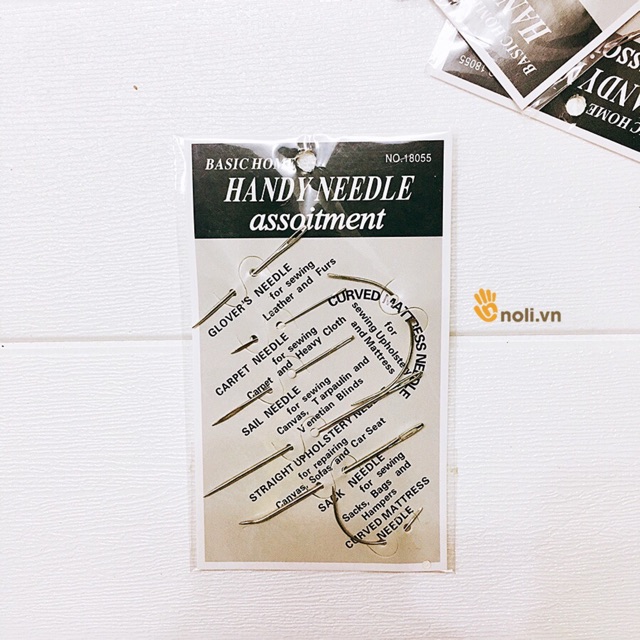 BASIC HOME
NO-18055
HANDY NEEDLE
assoitment
GLOVER'S NEEDLE
for sewing
Leather and Furs
CURVED MATTRESS NEEDLE
for
sewing Upholstery
and Mattress
CARPET NEEDLE
for sewing
Carpet and Heavy Cloth
SAIL NEEDLE
for sewing
Canvas, Tarpaulin and
Venetian Blinds
STRAIGHT UPHOLSTERY NEEDLE
for repairing
Canvas, Sofas and Car Seat
SACK NEEDLE
for sewing
Sacks, Bags and
Hampers
CURVED MATTRESS
NEEDLE
noli.vn
BASIC HOME
HAN
18055